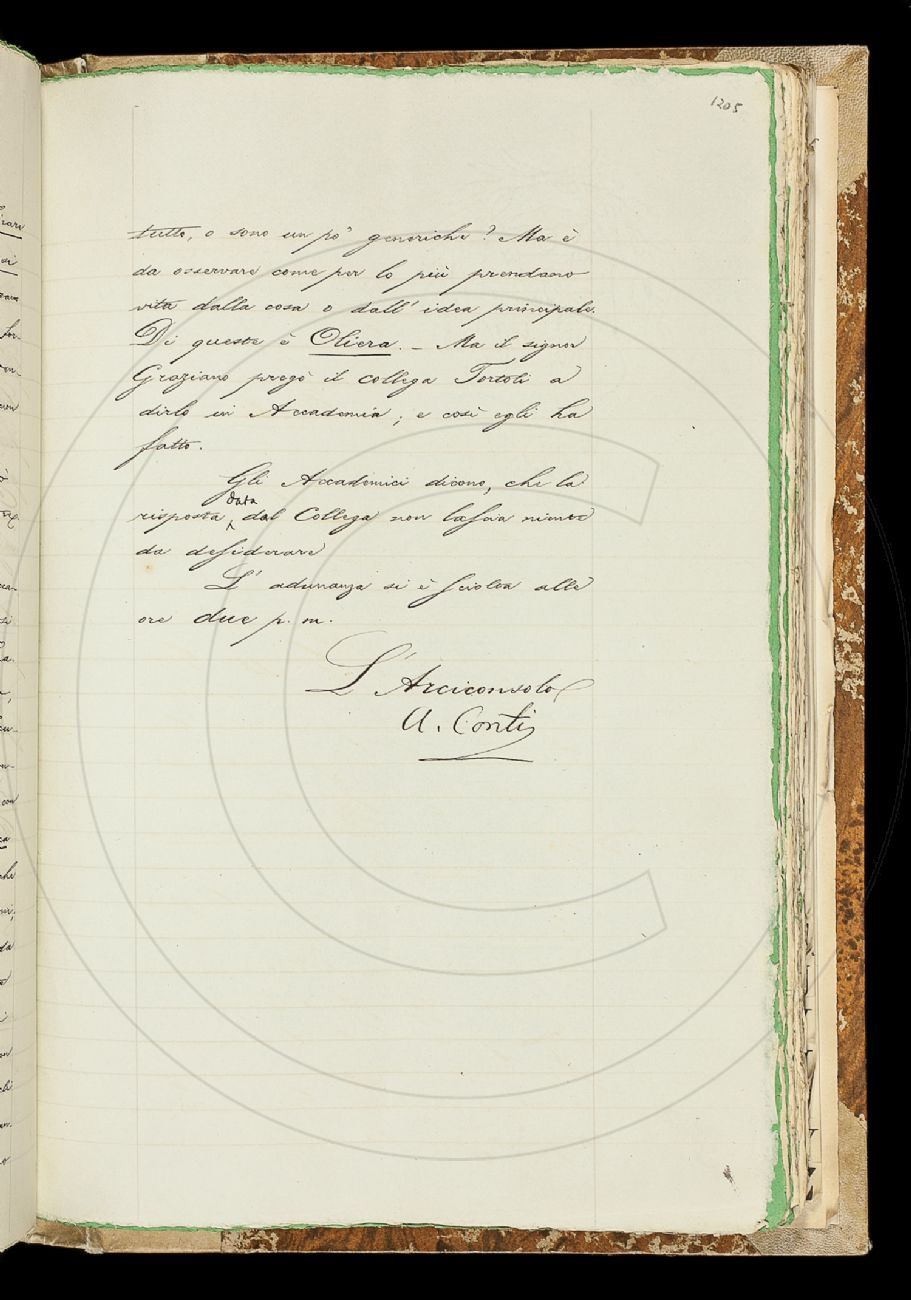 1205
tutto, o sono un pò generiche? Ma è
da osservare come per lo più prendano
vita dalla cosa o dall' idea principale.
Di queste è Oliera. — Ma il signor
Graziano pregò il collega Tortoli a
dirlo in Accademia; e così egli ha
fatto.
Gli Accademici dicono, che la
data
risposta dal Collega non lascia niente
da desiderare
L' adunanza si è sciolta alle
ore due p. m.
L' Arciconsolo
A. Conti